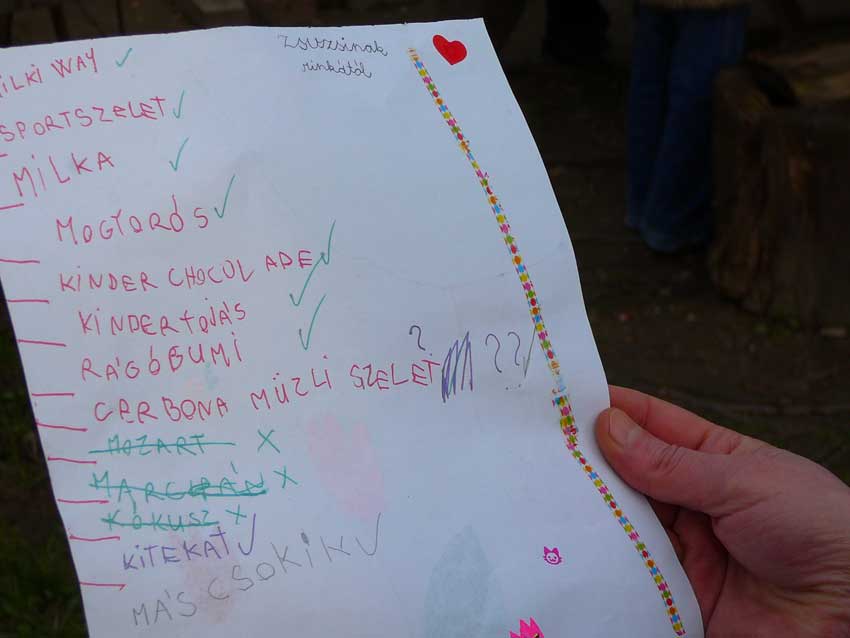 Zsuzsinak
rinkától
MILKI WAY ✓
SPORTSZELET ✓
MILKA ✓
MOGYORÓS ✓
KINDER CHOCOLADE ✓
KINDERTOJÁS ✓
RÁGÓGUMI ✓
CERBONA MÜZLI SZELET ? ?? ✓
MOZART X
MARCIPÁN X
KÓKUSZ X
KITEKAT ✓
MÁS CSOKIK ✓